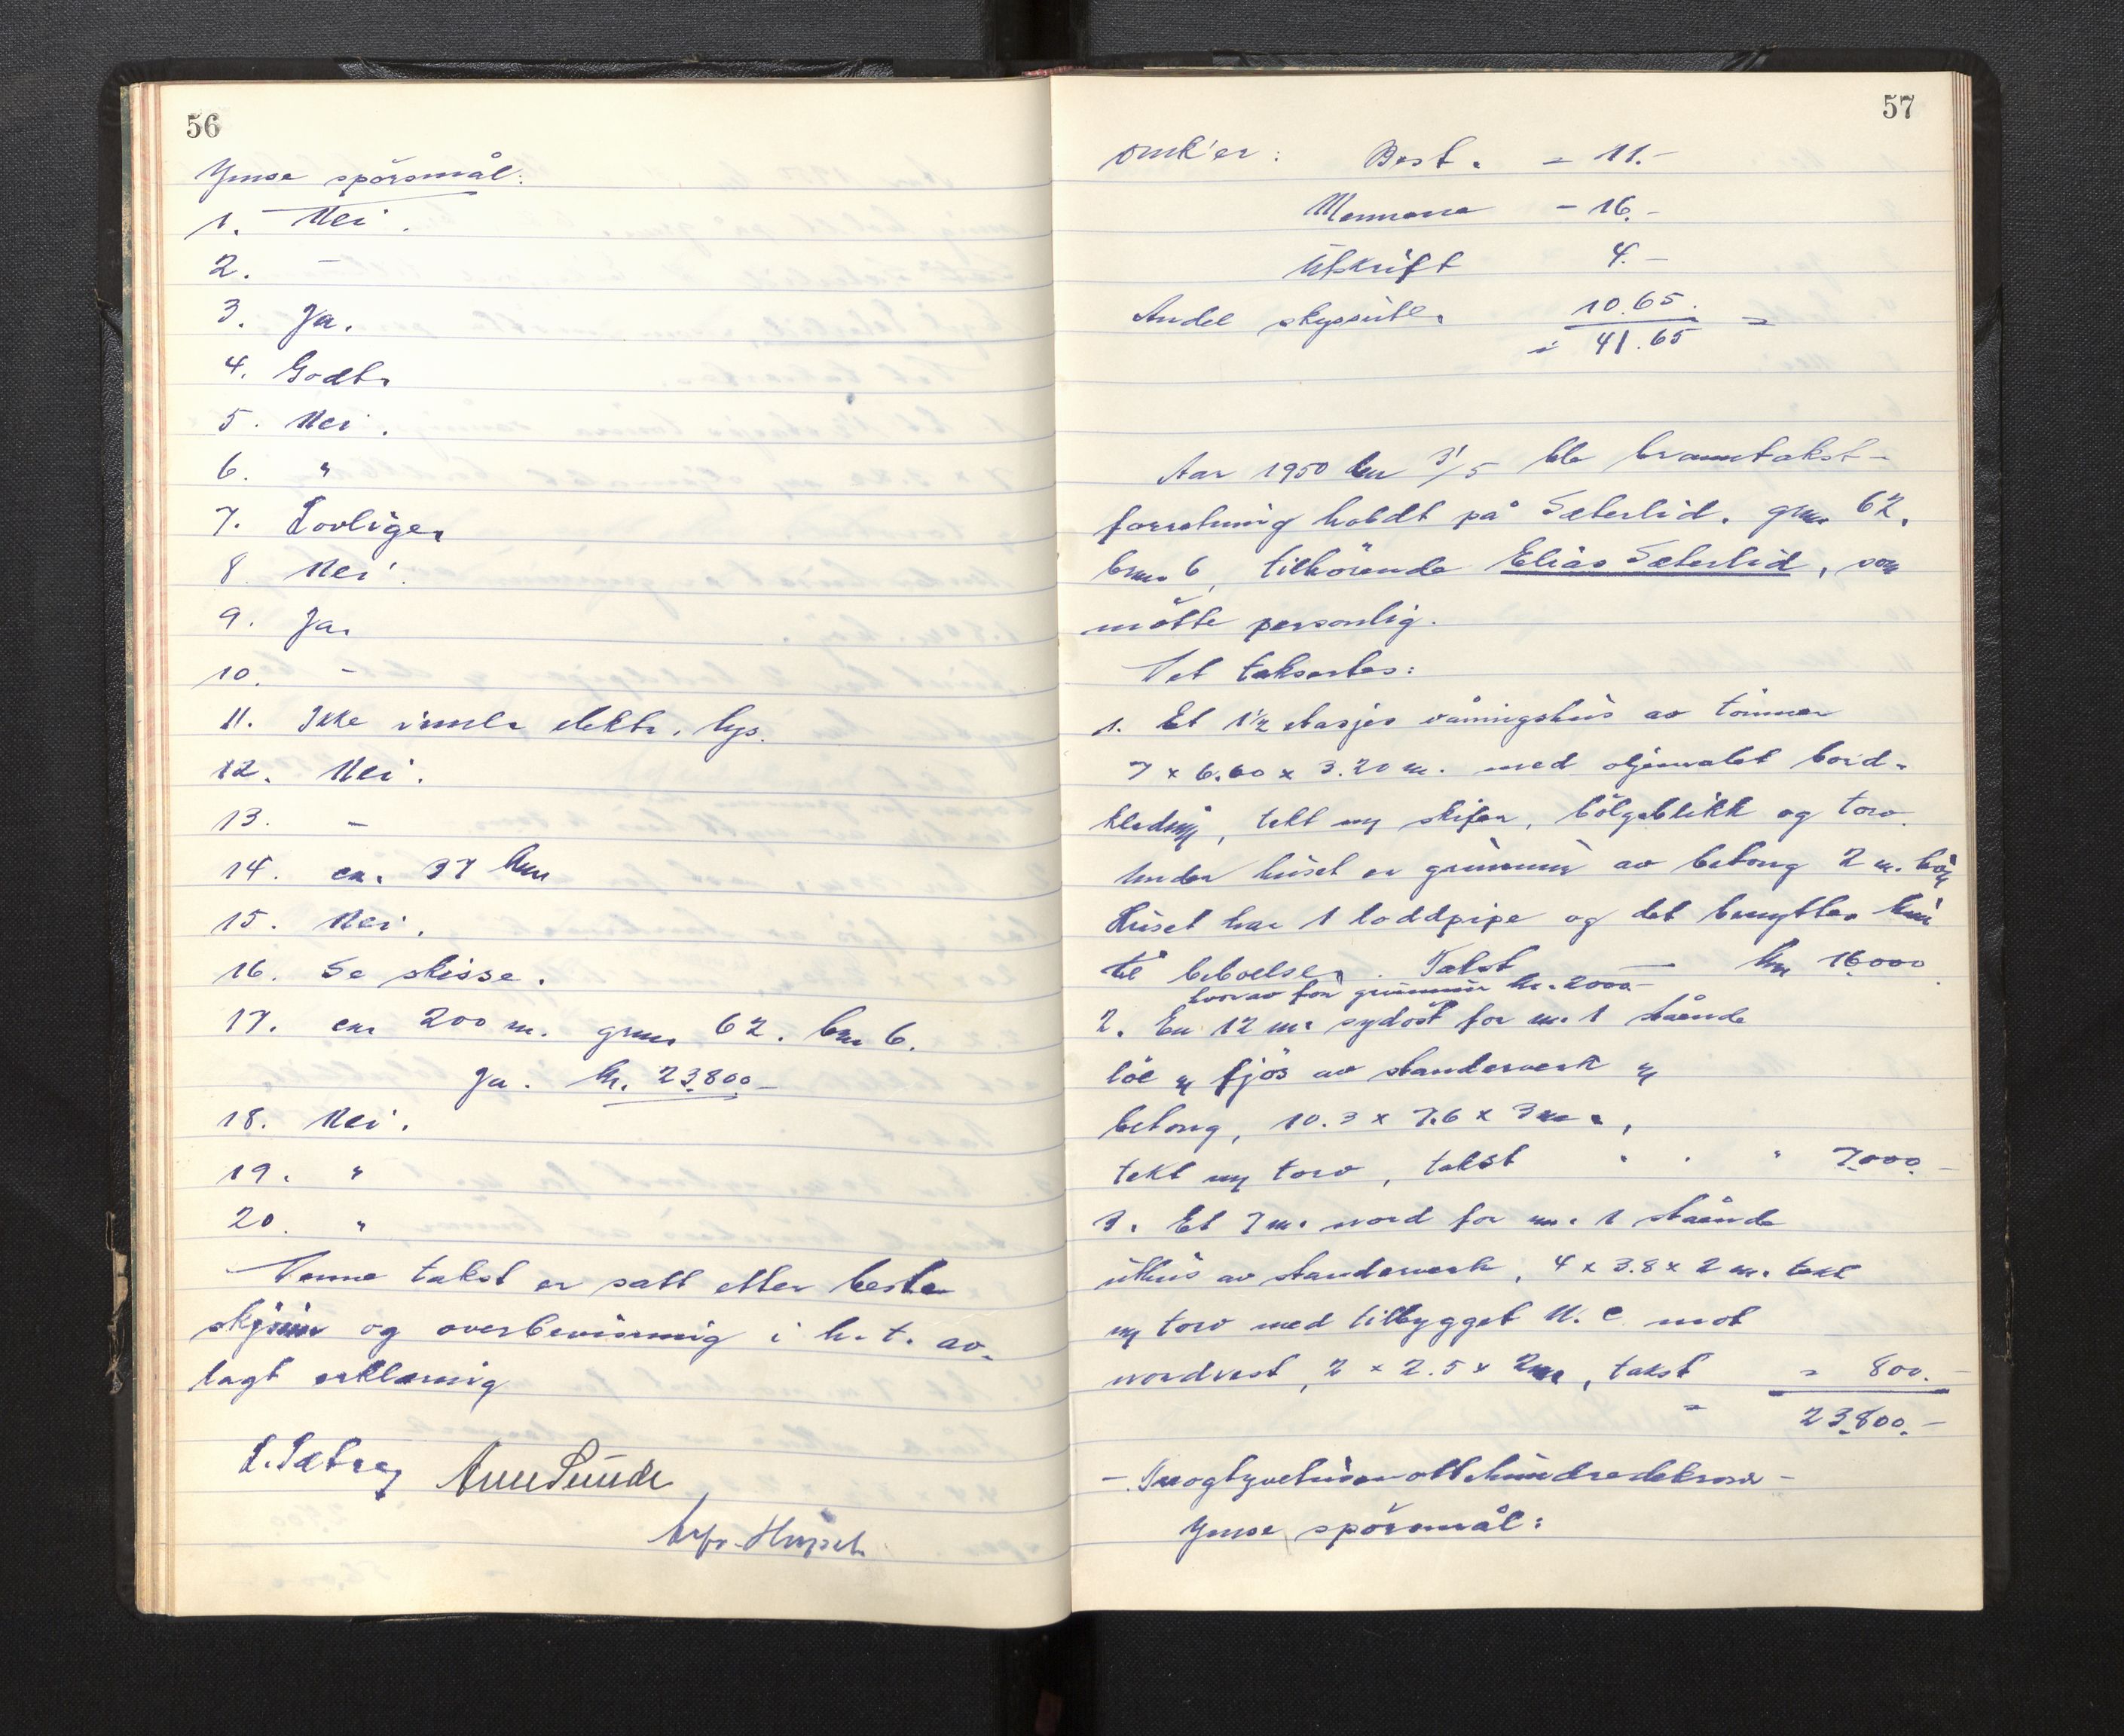 56
Ymse spörsmål:
1. Nei.
2. –
3. Ja.
4. Godt.
5. Nei.
6. "
7. Lovlige.
8. Nei.
9. Ja.
10. –
11. Ikke innl. elektr. lys.
12. Nei.
13. –
14. ca. 37 km
15. Nei.
16. Se skisse.
17. ca 200 m. gnr. 62. bnr 6.
Ja. kr. 23.800.–
18. Nei.
19. "
20. "
Denne takst er satt etter beste
skjönn og overbevisning i h.t. av-
lagt erklæring
L. Sætre Arne Sunde
57
Omk'er: Best. = 11.–
Mennene – 16.–
Utskrift 4.–
Andel skyssutl. 10.65.
41.65
Aar 1950 den 31/5 ble branntakst-
forretning holdt på Sæterlid. gnr. 62.
bnr. 6, tilhörende Elias Sæterlid, som
mötte personlig.
Det taksertes:
1. Et 1½ etasjes våningshus av tömmer
7 x 6.60 x 3.20 m. med oljemalet bord-
kledning, tekt m/ skifer, bölgeblikk og torv.
Under huset er grunnmur av betong 2 m. höy
Huset har 1 loddpipe og det benyttes kun
til beboelse. Takst – kr 16.000
hvorav for grunnmur kr. 2000.–
2. En 12 m. sydöst for nr. 1 stående
löe og fjös av standerverk og
betong, 10.3 x 7.6 x 3 m.,
tekt m/ torv, takst " " " 7.000.–
3. Et 7 m. nord for nr. 1 stående
uthus av standerverk, 4 x 3.8 x 2 m. tekt
m/ torv med tilbygget W.C. mot
nordvest, 2 x 2.5 x 2 m., takst = 800.–
= 23.800.–
– Treogtyvetusenottehundredekroner –
Ymse spörsmål: